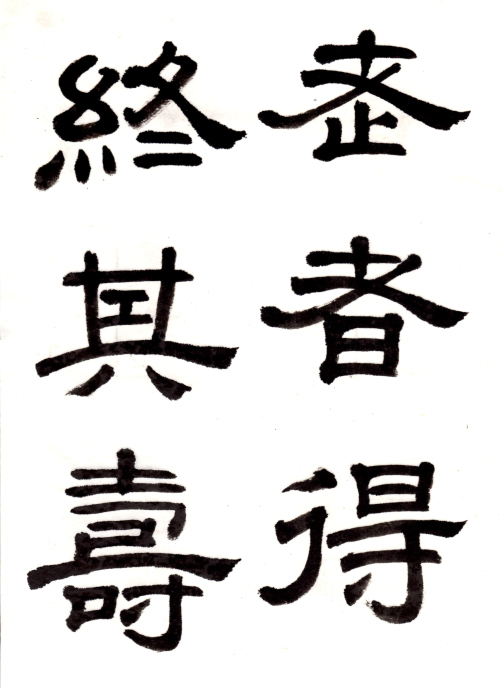 老者得
終其壽